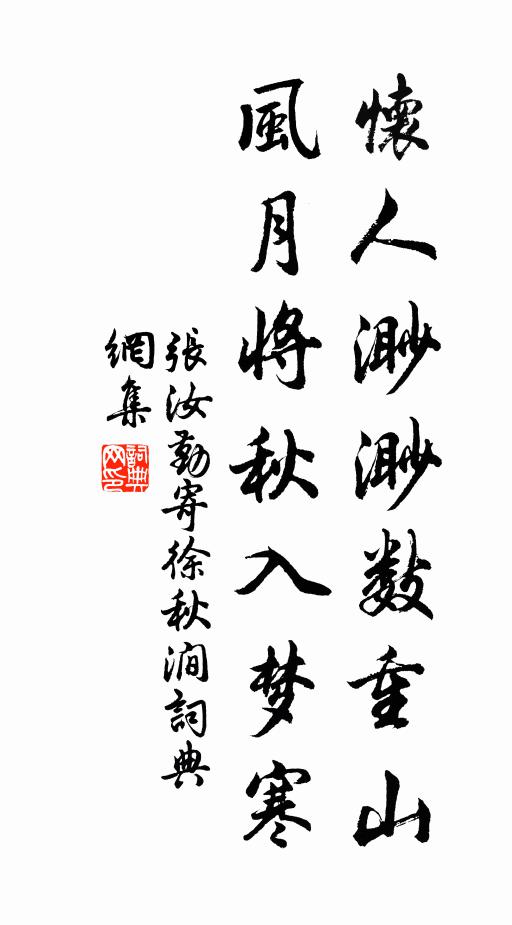 懷人渺渺數重山
風月將秋入梦寒
張汝勤寄徐秋澗詞典
網集
詞典
网印